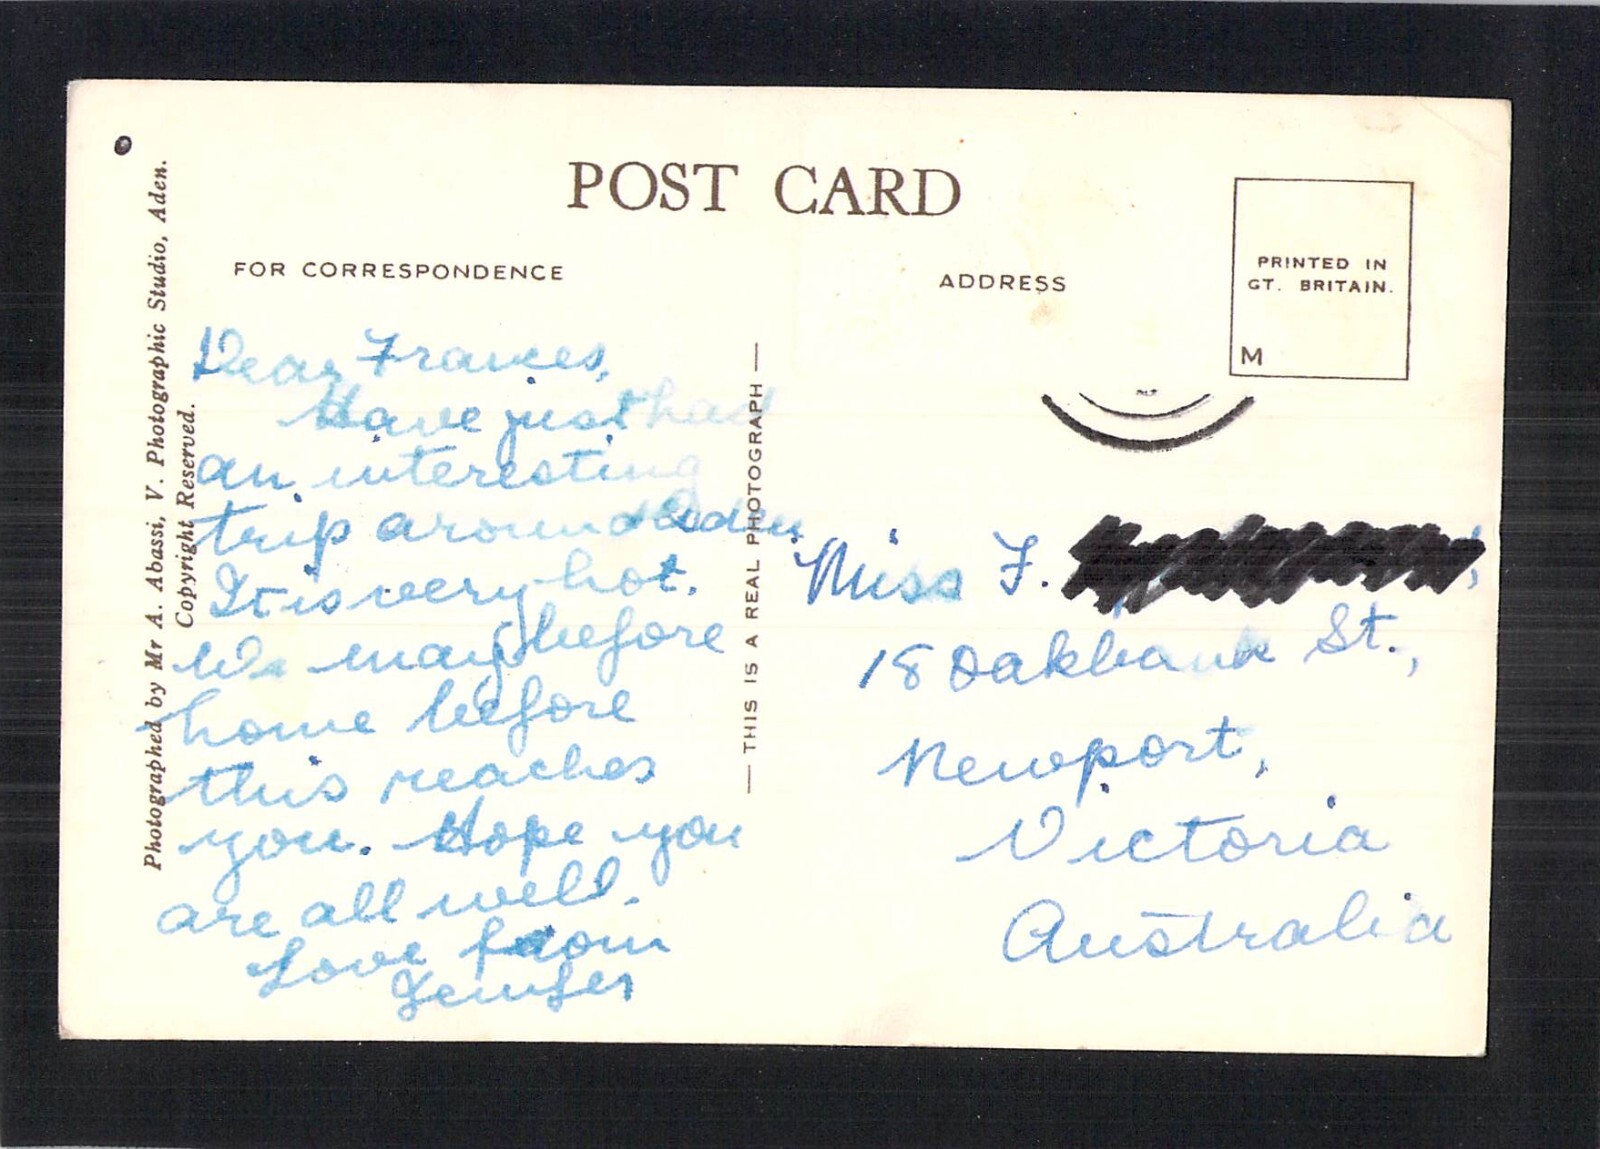 POST CARD
FOR CORRESPONDENCE
ADDRESS
PRINTED IN
GT. BRITAIN.
M
Photographed by Mr A. Abassi, V. Photographic Studio, Aden.
Copyright Reserved.
Dear Frances,
Have just had
an interesting
trip around Aden.
It is very hot.
We may before
home before
this reaches
you. Hope you
are all well.
Love from
— THIS IS A REAL PHOTOGRAPH —
Miss F.
18 Oakbank St.,
Newport,
Victoria
Australia